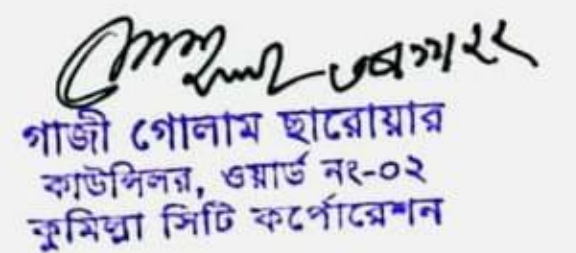 গাজী গোলাম ছারোয়ার
কাউন্সিলর, ওয়ার্ড নং-০২
কুমিল্লা সিটি কর্পোরেশন